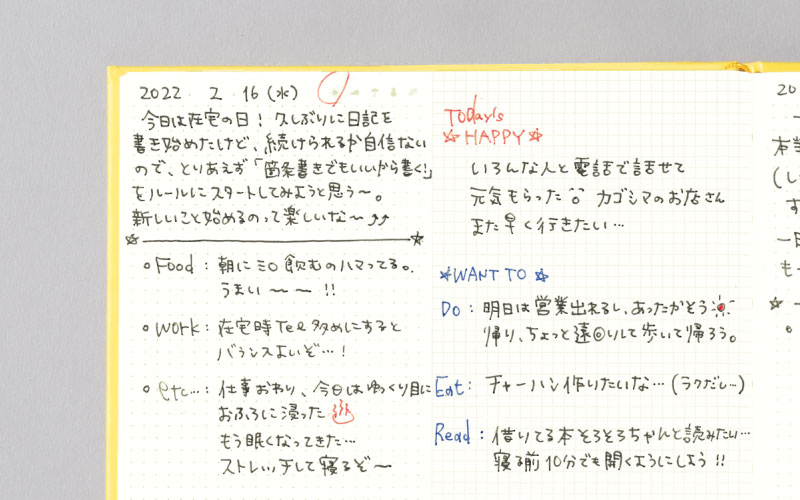 2022. 2. 16 (水)
今日は在宅の日! 久しぶりに日記を
書き始めたけど、続けられるか自信ない
ので、とりあえず「箇条書きでもいいから書く!」
をルールにスタートしてみようと思う〜。
新しいこと始めるのって楽しいな〜
Food : 朝にミロ飲むのハマってる。
うまい〜〜!!
Work : 在宅時Tel多めにすると
バランスよいぞ…!
etc… : 仕事おわり、今日はゆっくり目に
おふろに浸った
もう眠くなってきた…
ストレッチして寝るぞ〜
Today's
☆HAPPY☆
いろんな人と電話で話せて
元気もらった カゴシマのお店さん
また早く行きたい…
☆WANT TO☆
Do : 明日は営業出れるし、あったかそう
帰り、ちょっと遠回りして歩いて帰ろう。
Eat : チャーハン作りたいな…(ラクだし…)
Read : 借りてる本そろそろちゃんと読みたい…
寝る前10分でも開くようにしよう!!
20
本当
(し
す
一日
も